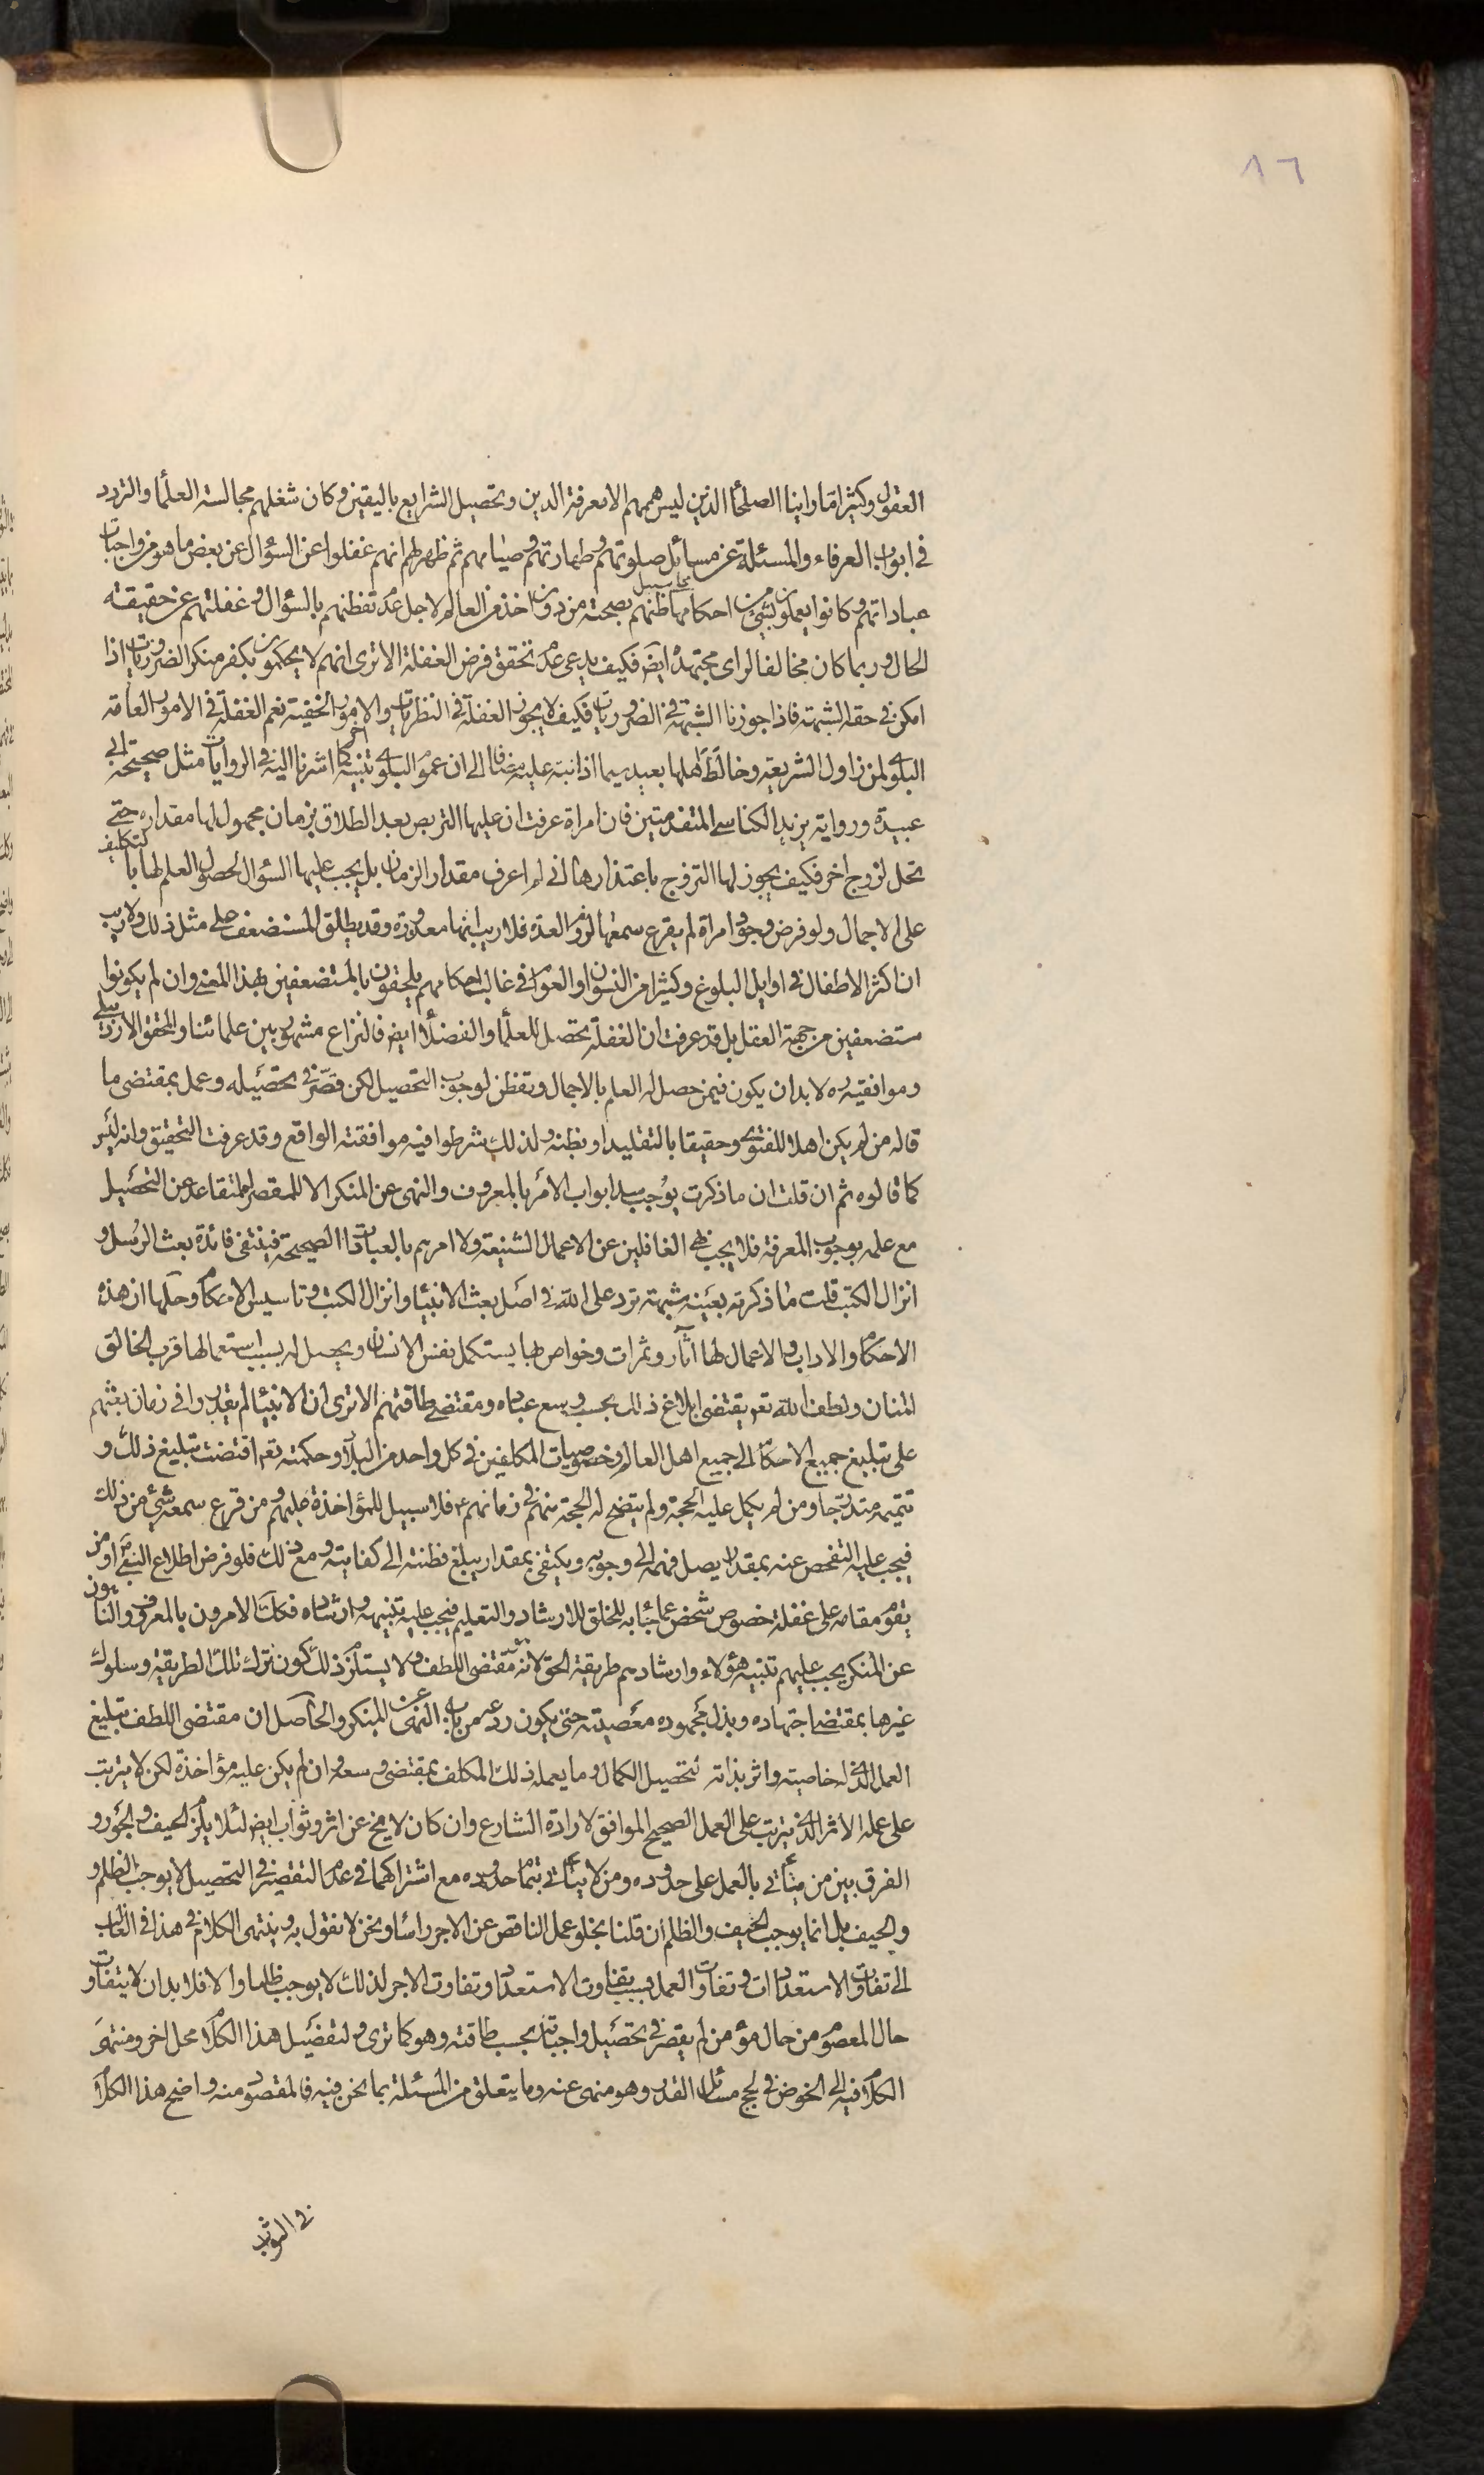 ٨٦
العقول وكثيرا ما راينا الصلحاء الذين ليس هممهم الا معرفة الدين وتحصيل الشرايع باليقين وكان شغلهم مجالسة العلماء والتردد
في ابواب العرفاء والمسئلة عن مسائل صلوتهم وطهارتهم وصيامهم ثم ظهر لهم انهم غفلوا عن السؤال عن بعض ما هو من واجبات
عباداتهم وكانوا يعملون بشئ من احكامها بظنهم بصحته من دون اخذ من العالم لاجل عدم تفطنهم بالسؤال وغفلتهم عن حقيقة
الحال وربما كان مخالفا لراى مجتهده ايض فكيف يدعى عدم تحقق فرض الغفلة الا ترى انهم لا يحكمون بكفر منكر الضروريات اذا
امكن في حقه الشبهة فاذا جوزنا الشبهة في الضروريات فكيف لا يجوز الغفلة في النظريات والامور الخفية نعم الغفلة في الامور العامة
البلوى لمن زاول الشريعة وخالط اهلها بعيد سيما اذا نبه عليه مضافا الى ان عموم البلوى تنبيه اخر كما اشرنا اليه في الروايات مثل صحيحة ابي
عبيدة ورواية يزيد الكناسي المتقدمتين فان امراة عرفت ان عليها التربص بعد الطلاق بزمان مجهول لها مقداره حتى
تحل لزوج اخر فكيف يجوز لها التزوج باعتذارها اني لم اعرف مقدار الزمان بل يجب عليها السؤال لحصول العلم لها بالتكليف
على الاجمال ولو فرض وجود امراة لم يقرع سمعها لزوم العدة فلا ريب انها معذورة وقد يطلق المستضعف على مثل ذلك ولا ريب
ان اكثر الاطفال في اوايل البلوغ وكثيرا من النسوان او العوام في غالب احكامهم يلحقون بالمستضعفين بهذا المعنى وان لم يكونوا
مستضعفين من جهة العقل بل قد عرفت ان الغفلة يحصل للعلماء والفضلاء ايض فالنزاع مشهور بين علمائنا والمحقق الاردبيلي
وموافقيه ره لا بد ان يكون فيمن حصل له العلم بالاجمال وتفطن لوجوب التحصيل لكن قصر في تحصيله وعمل بمقتضى ما
قاله من لم يكن اهلا للفتوى وحقيقا بالتقليد او بظنه ولذلك شرطوا فيه موافقته الواقع وقد عرفت التحقيق وانه ليس
كما قالوه ثم ان قلت ان ما ذكرت يوجب سد ابواب الامر بالمعروف والنهى عن المنكر الا للمقصر المتقاعد عن التحصيل
مع علمه بوجوب المعرفة فلا يجب نهى الغافلين عن الاعمال الشنيعة ولا امرهم بالعبادات الصحيحة فينتفى فائدة بعث الرسل و
انزال الكتب قلت ما ذكرته بعينه شبهة ترد على الله في اصل بعث الانبياء وانزال الكتب وتاسيس الاحكام وحلها ان هذه
الاحكام والاداب والاعمال لها اثار وثمرات وخواص بها يستكمل نفس الانسان ويحصل له بسبب استعمالها قرب الخالق
المنان ولطف الله تع يقتضى ابلاغ ذلك بحسب وسع عباده ومقتضى طاقتهم الا ترى ان الانبياء لم يقدروا في زمان بعثهم
على تبليغ جميع الاحكام الى جميع اهل العالم وخصوصيات المكلفين في كل واحد من البلاد وحكمته تع اقتضت تبليغ ذلك و
تتميمه متدرجا ومن لم يكمل عليه الحجة ولم يتضح له الحجة منهم في زمانهم ع فلا سبيل للمؤاخذة عليهم ومن قرع سمعه شئ من ذلك
فيجب عليه التفحص عنه بمقدار يصل فهمه الى وجوبه ويكتفى بمقدار يبلغ فطنته الى كفايته ومع ذلك فلو فرض اطلاع النبي ص او من
يقوم مقامه على غفلة خصوص شخص عما جاء به للخلق للارشاد والتعليم فيجب عليه تنبيهه وارشاده فكك الامرون بالمعروف والناهون
عن المنكر يجب عليهم تنبيه هؤلاء وارشادهم طريقة الحق لانه مقتضى اللطف ولا يستلزم ذلك كون ترك تلك الطريقة وسلوك
غيرها بمقتضى اجتهاده وبذل مجهوده معصيته حتى يكون ردعه من باب النهى عن المنكر والحاصل ان مقتضى اللطف تبليغ
العمل الذى له خاصية واثر بذاته لتحصيل الكمال وما يعمله ذلك المكلف بمقتضى وسعه وان لم يكن عليه مؤاخذة لكن لا يترتب
على عمله الاثر الذى يترتب على العمل الصحيح الموافق لارادة الشارع وان كان لا يخ عن اثر وثواب ايض لئلا يلزم الحيف والجور و
الفرق بين من يتأتى بالعمل على حدوده ومن لا يتأتى بتمام حدوده مع اشتراكهما في عدم التقصير في التحصيل لا يوجب الظلم و
والحيف بل انما يوجب الحيف والظلم ان قلنا بخلو عمل الناقص عن الاجر راسا ونحن لا نقول به وينتهى الكلام في هذا في الغالب
الى تفاوت الاستعدادات وتفاوت العمل بسبب تفاوت الاستعداد وتفاوت الاجر لذلك لا يوجب ظلما والا فلا بد ان لا يتفاوت
حال المعصوم من حال مؤمن لم يقصر في تحصيل واجباته بحسب طاقته وهو كما ترى ولتفصيل هذا الكلام محل اخر ومنتهى
الكلام فيه الى الخوض في لجج مسائل القدر وهو منهى عنه وما يتعلق من المسئلة بما نحن فيه فالمقصود منه واضح هذا الكلام